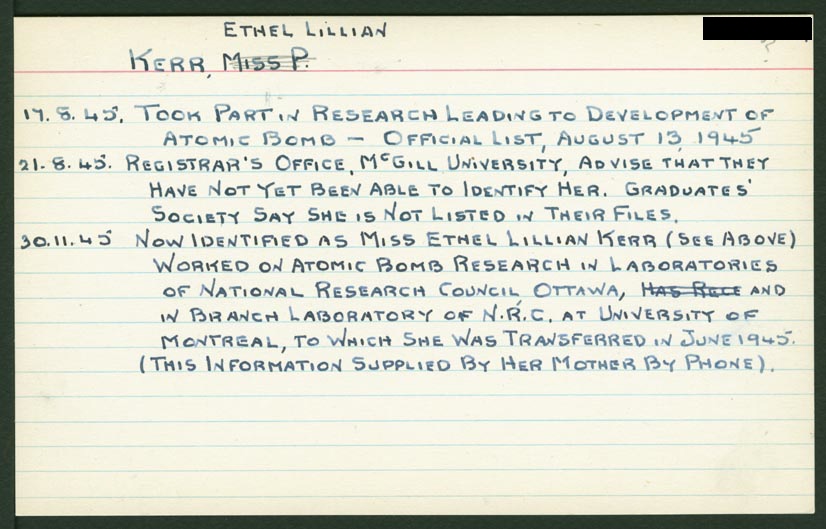 ETHEL LILLIAN
KERR, MISS P.
17. 8. 45. TOOK PART IN RESEARCH LEADING TO DEVELOPMENT OF
ATOMIC BOMB — OFFICIAL LIST, AUGUST 13, 1945
21. 8. 45. REGISTRAR'S OFFICE, McGILL UNIVERSITY, ADVISE THAT THEY
HAVE NOT YET BEEN ABLE TO IDENTIFY HER. GRADUATES'
SOCIETY SAY SHE IS NOT LISTED IN THEIR FILES.
30.11.45 NOW IDENTIFIED AS MISS ETHEL LILLIAN KERR (SEE ABOVE)
WORKED ON ATOMIC BOMB RESEARCH IN LABORATORIES
OF NATIONAL RESEARCH COUNCIL, OTTAWA, HAS RECE AND
IN BRANCH LABORATORY OF N.R.C. AT UNIVERSITY OF
MONTREAL, TO WHICH SHE WAS TRANSFERRED IN JUNE 1945.
(THIS INFORMATION SUPPLIED BY HER MOTHER BY PHONE).